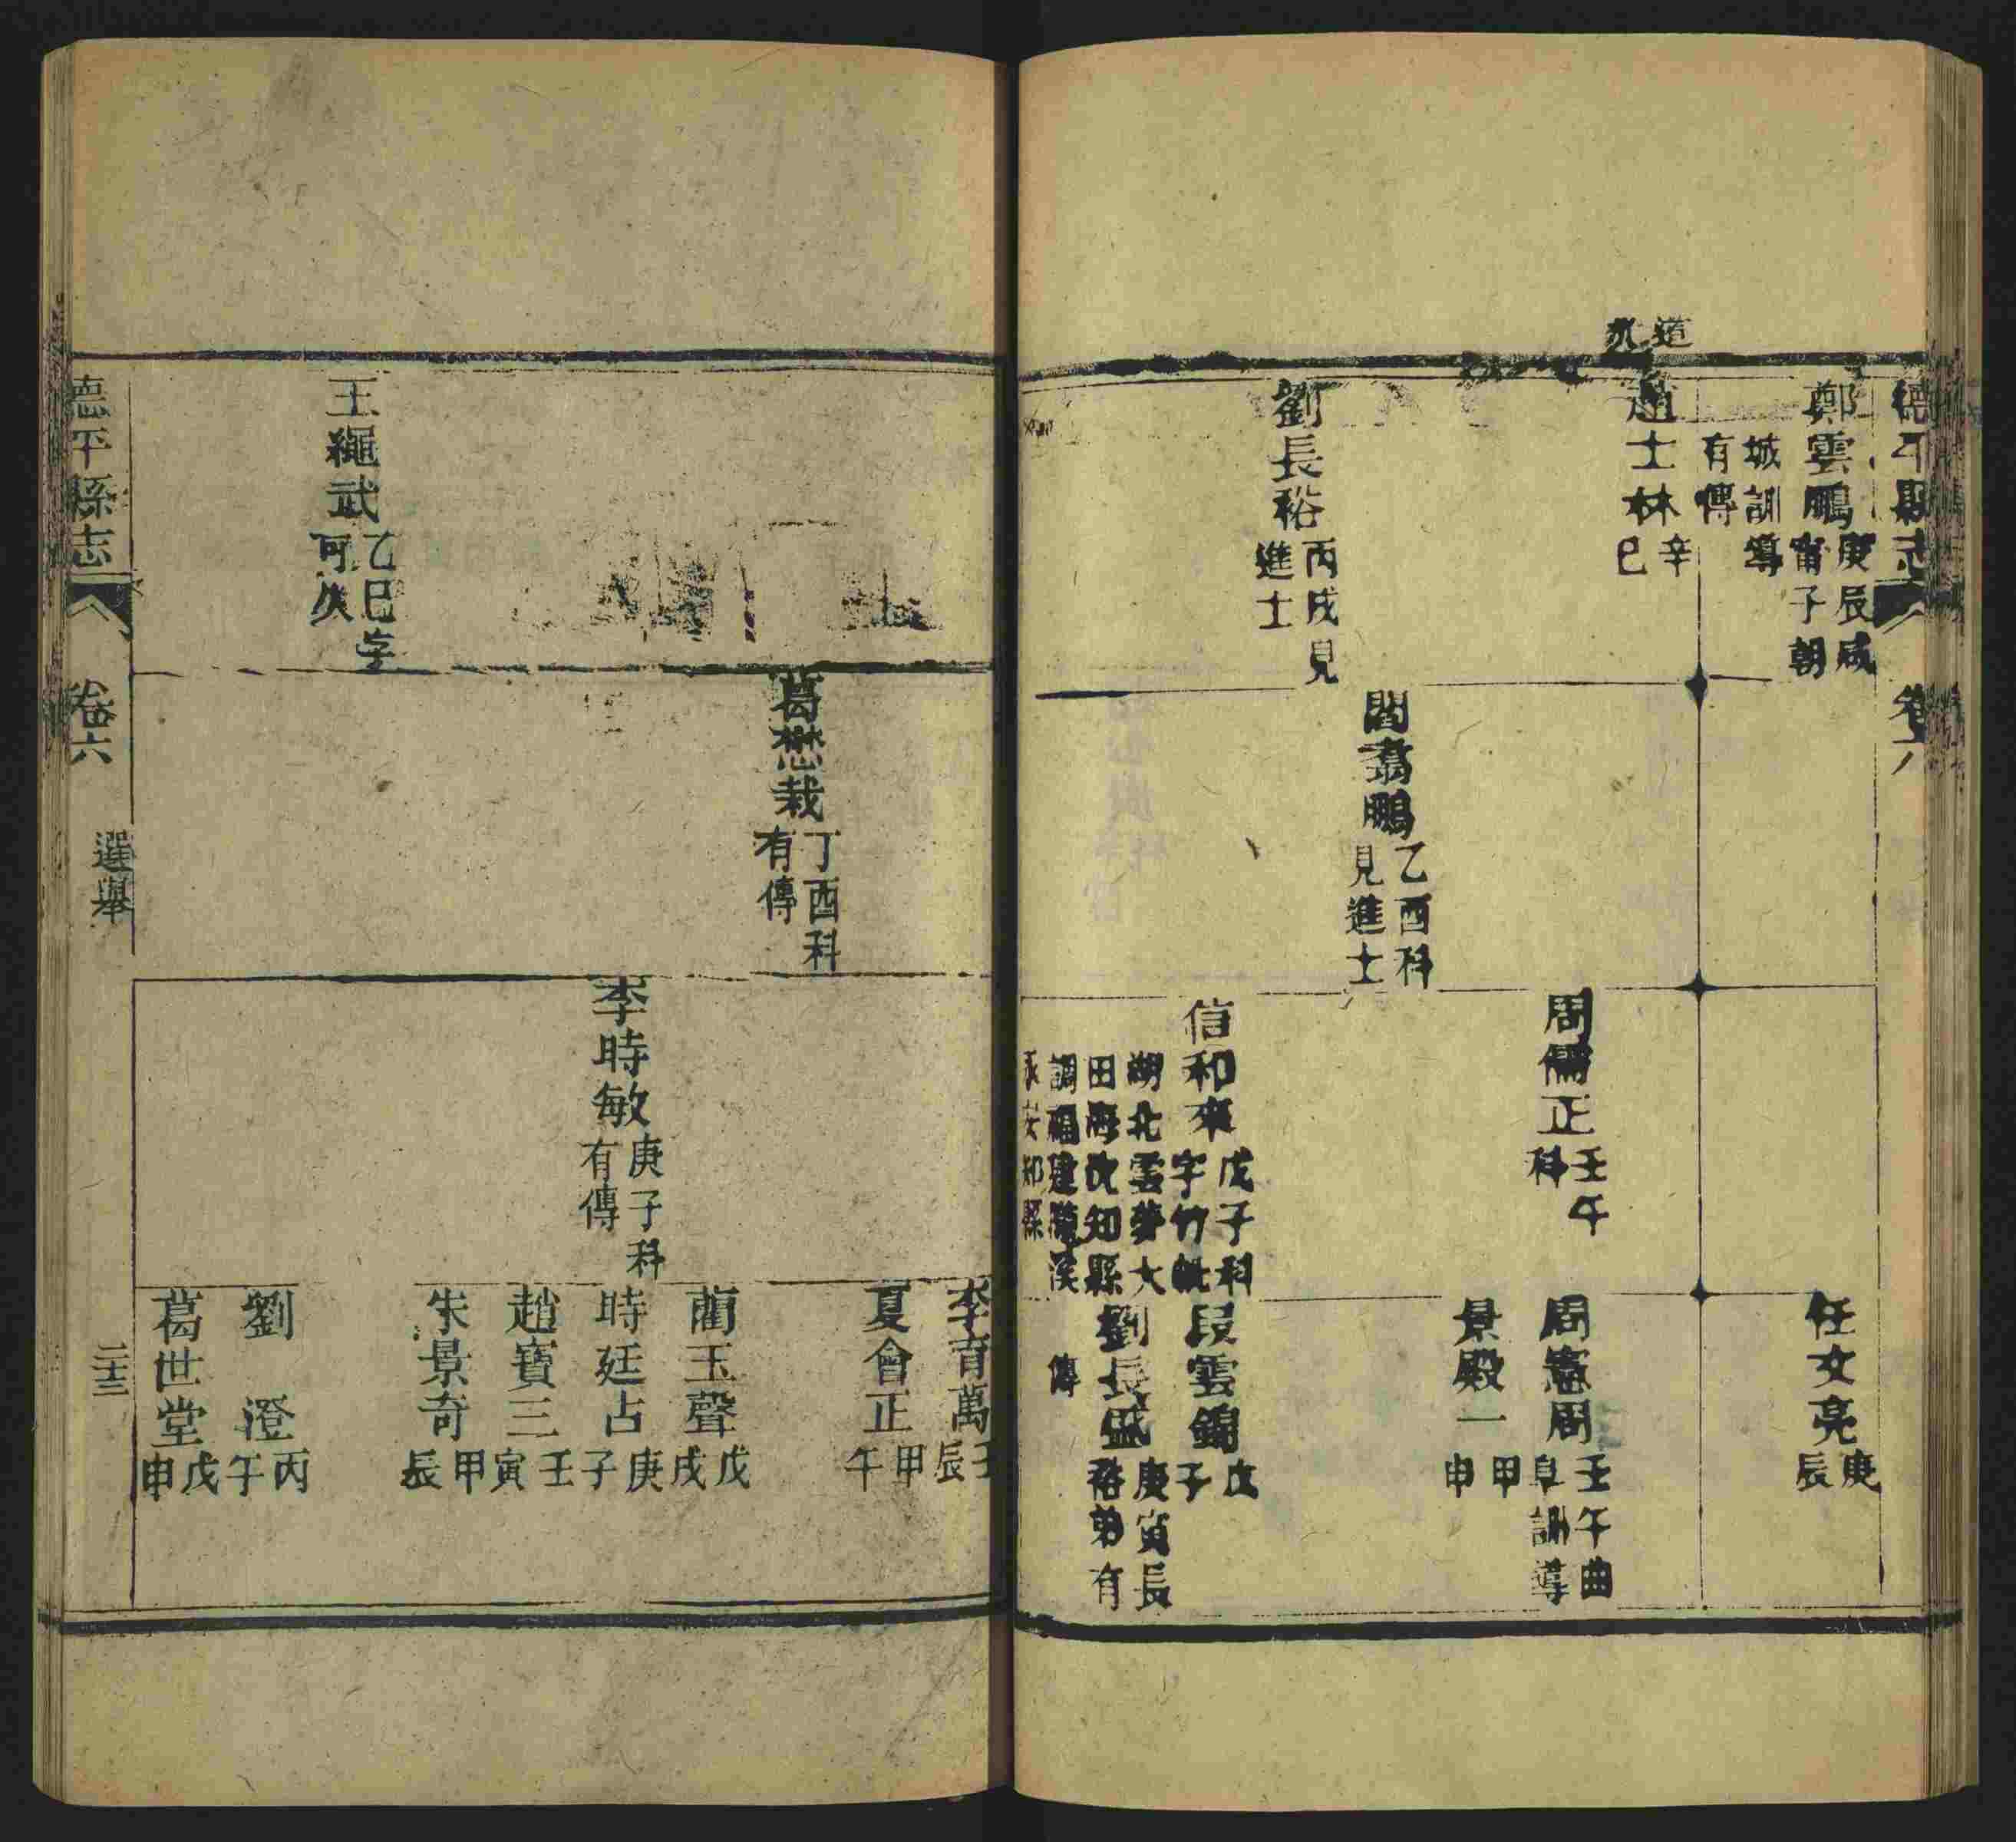 德平縣志 卷六
鄭雲鵬庚辰咸
甯子朝
城訓導
有傳
任文亮庚
辰
道光
趙士林辛
巳
周儒正壬午
科
周憲周壬午曲
阜訓導
景殿一甲
申
閻翥鵬乙酉科
見進士
劉長裕丙戌見
進士
信和來戊子科
字竹
湖北雲夢大
田海沈知縣
調福建漳溪
永安知縣
段雲錦戊
子
劉長盛庚寅長
裕弟有
傳
李育萬壬
辰
夏會正甲
午
葛懋栽丁酉科
有傳
藺玉聲戊
戌
李時敏庚子科
有傳
時廷占庚
子
趙寶三壬
寅
朱景奇甲
辰
王繩武乙巳字
可庚
劉澄丙
午
葛世堂戊
申
德平縣志 卷六 選舉 二十三